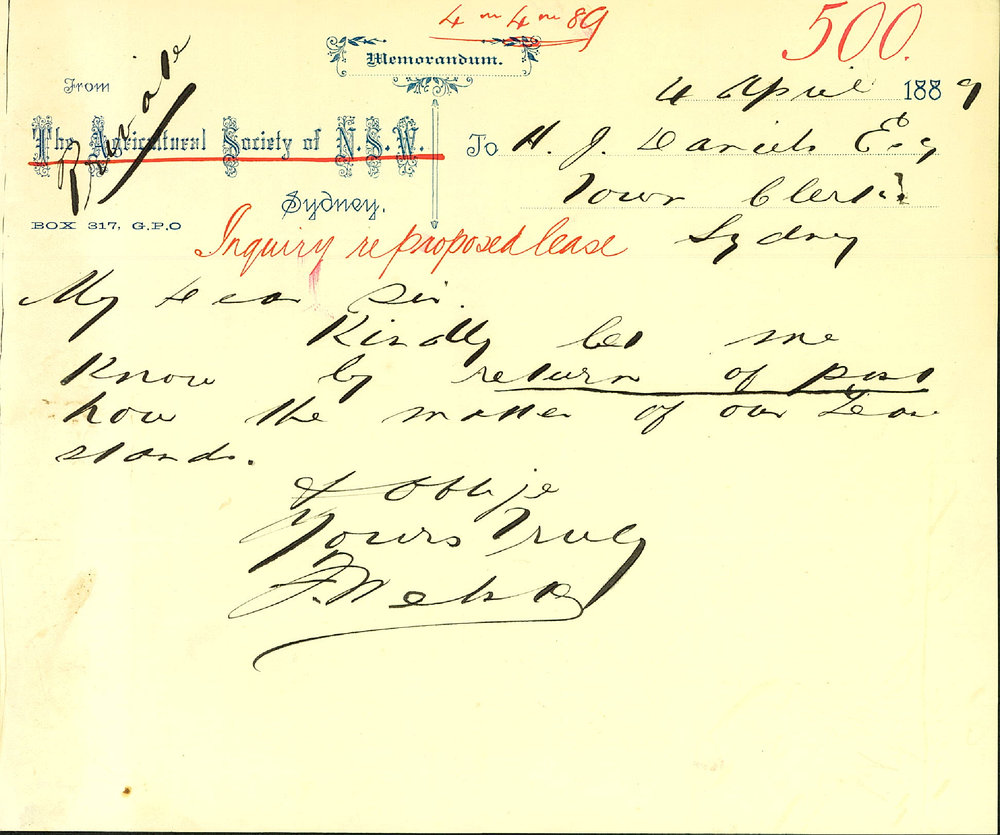 4 m 4 m 89
500.
Memorandum.
From
Private
4 April 1889
The Agricultural Society of N.S.W.
To H. J. Daniels Esq
Town Clerk
Sydney.
BOX 317, G.P.O
Sydney
Inquiry re proposed lease
My Dear Sir.
Kindly let me
Know by return of post
how the matter of our Lease
stands.
& oblige
Yours Truly